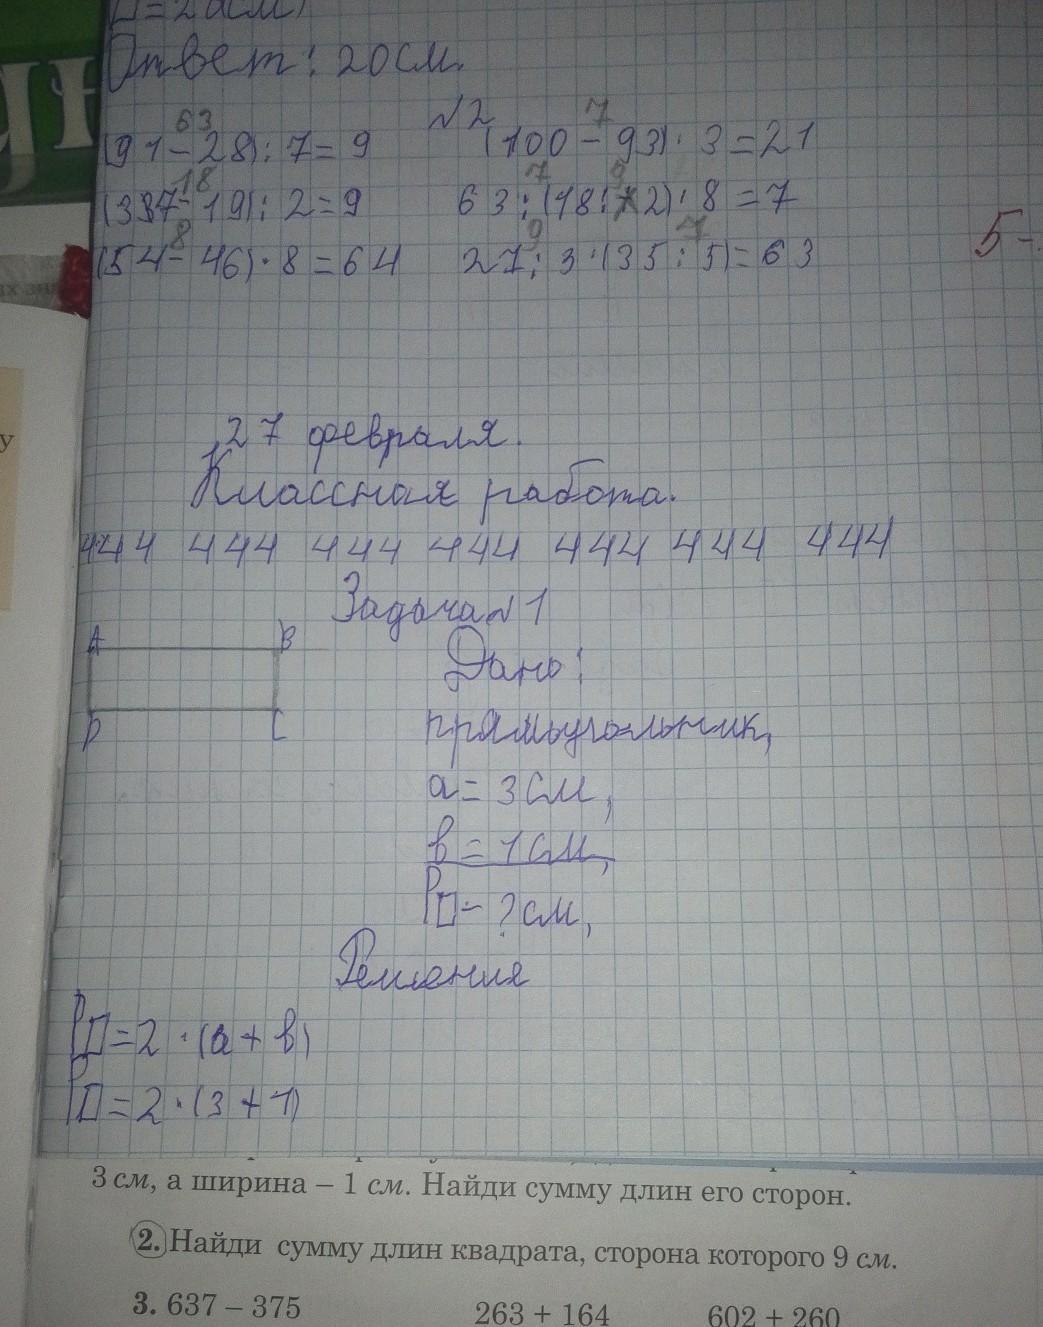 Ответ: 20 см.
№2
63 7
(91-28):7=9 (100-93)·3=21
18 7 9
(37-19):2=9 63:(18:2)·8=7
8 9 7
(54-46)·8=64 27:3·(35:5)=63
5-
у
27 февраля.
Классная работа.
444 444 444 444 444 444 444
Задача №1
A B
Дано:
D C
прямоугольник,
a=3см,
в=1см,
P□-?см,
Решения
P□=2·(а+в)
P□=2·(3+1)
3 см, а ширина – 1 см. Найди сумму длин его сторон.
2. Найди сумму длин квадрата, сторона которого 9 см.
3. 637 – 375 263 + 164 602 + 260